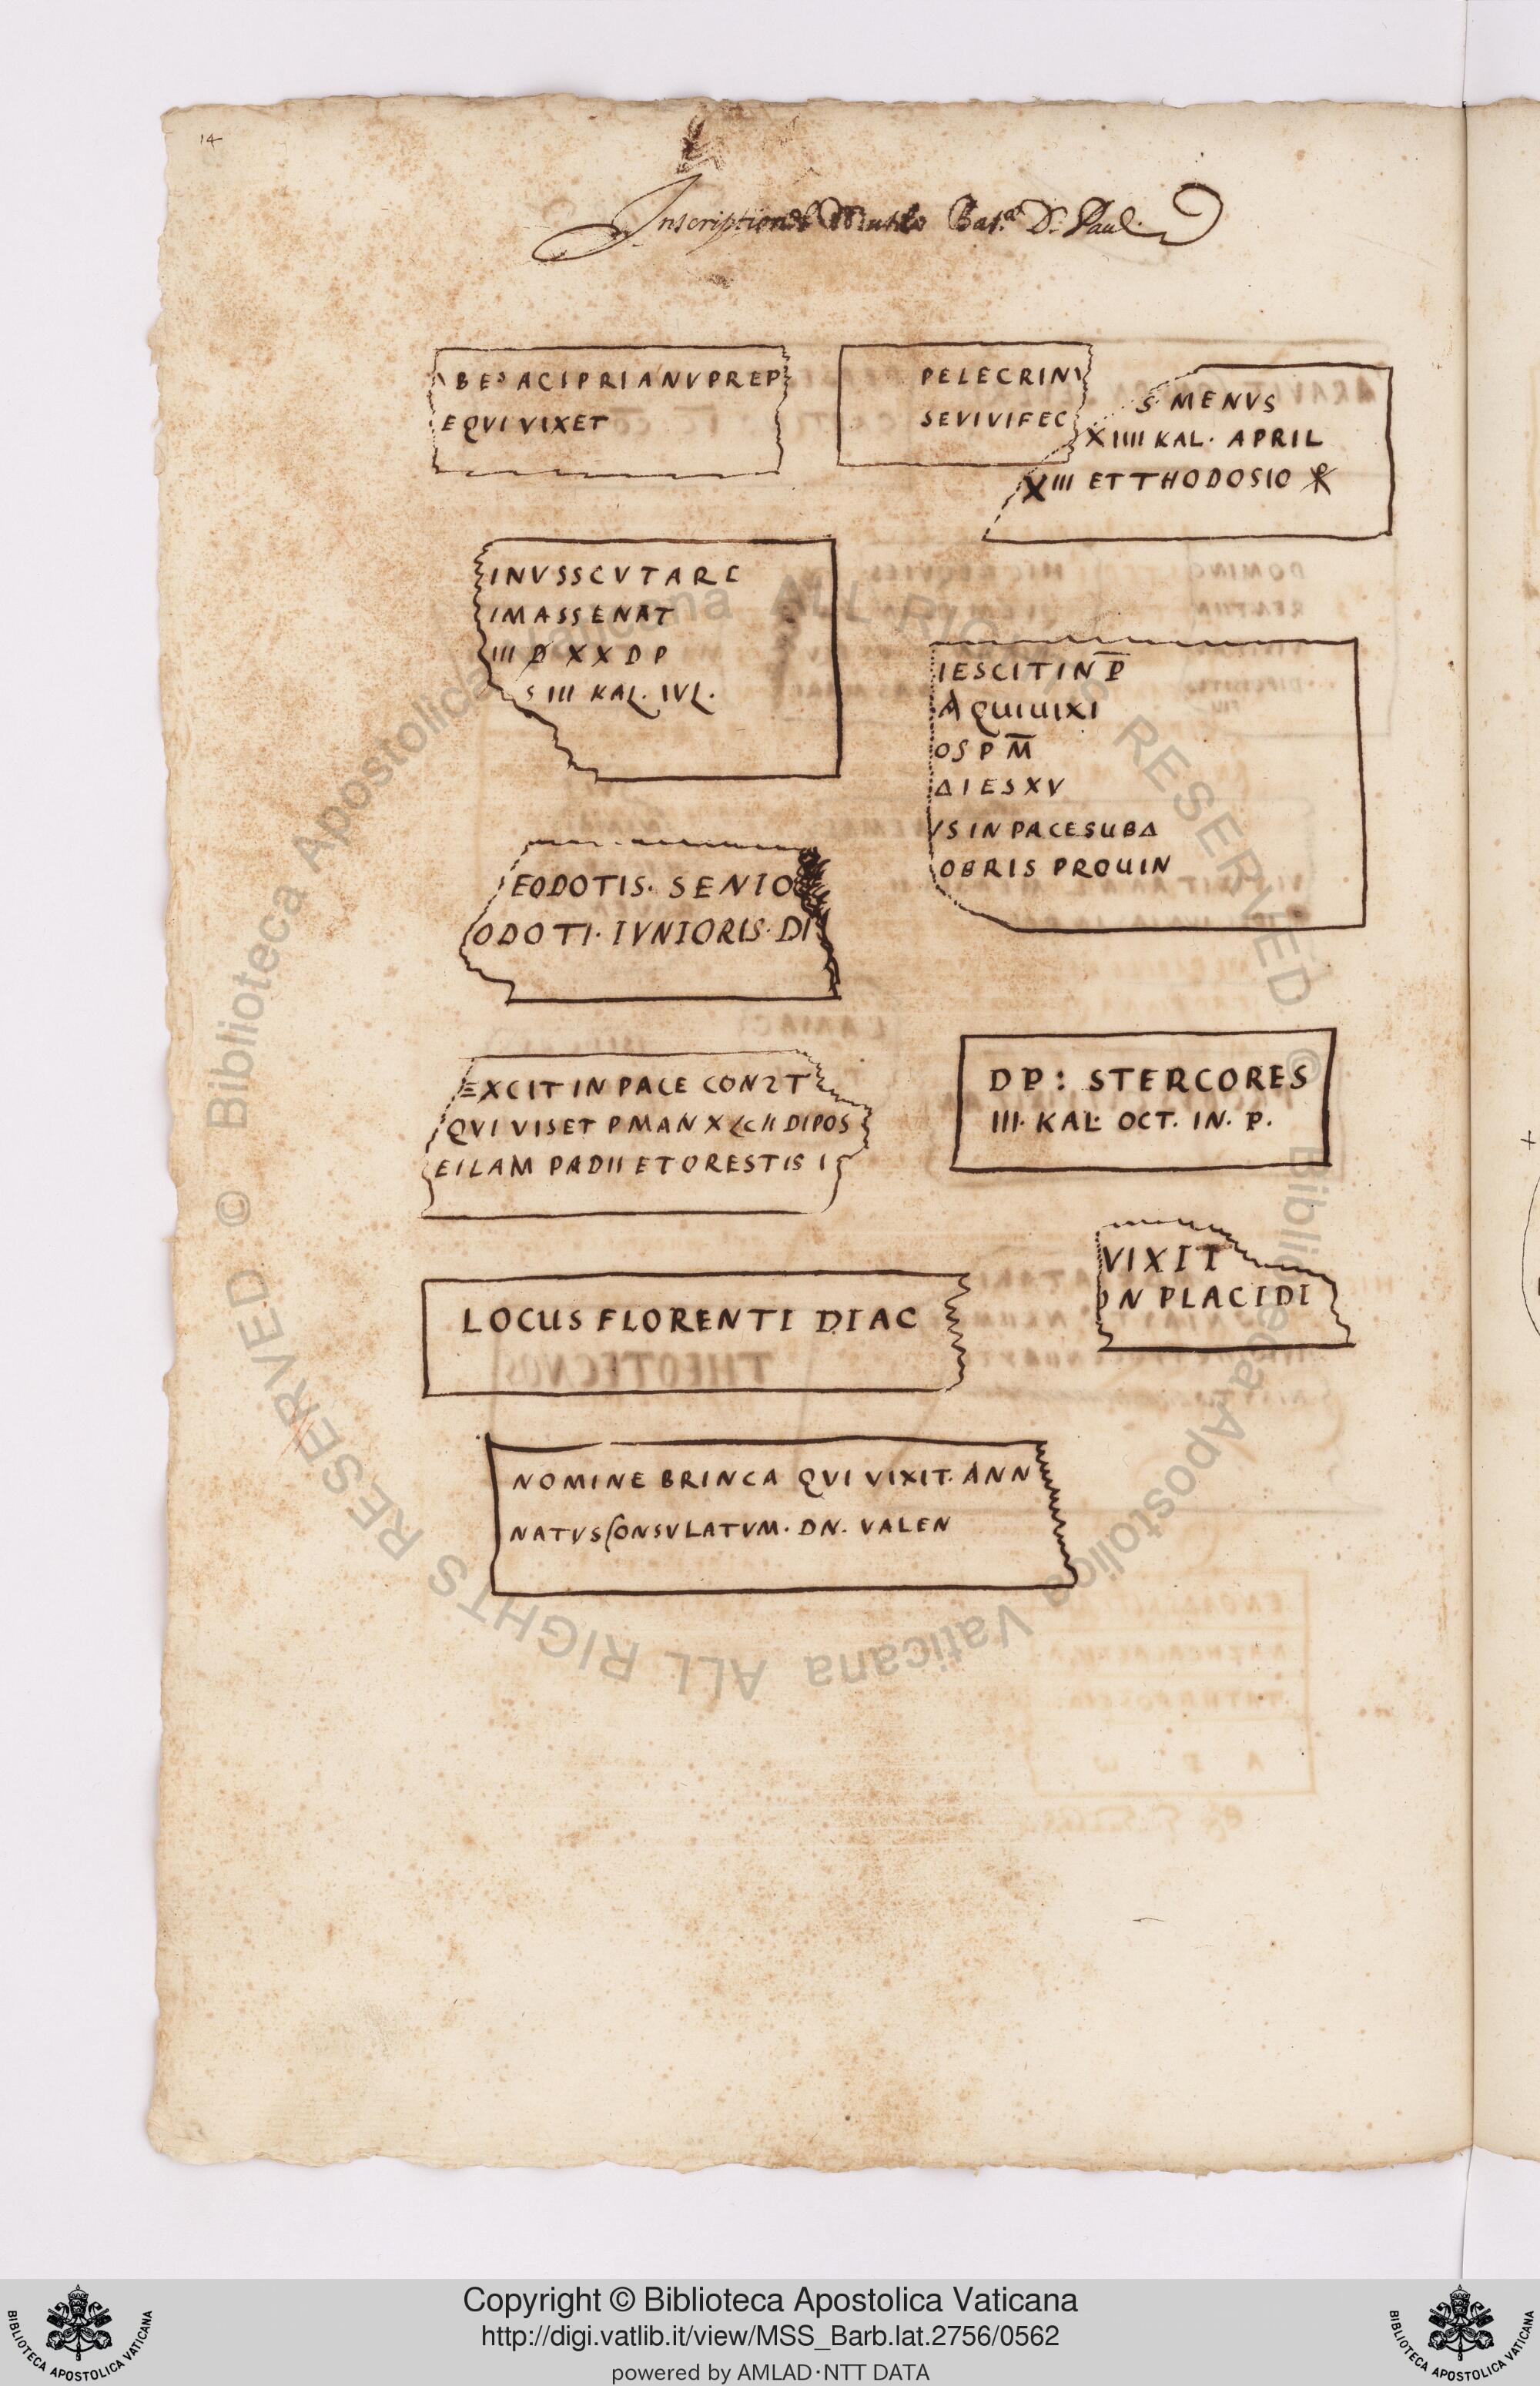 14
Inscriptiones Mutile Bas.ca D. Paul.
BEƆACIPRIANVPREP
EQVIVIXET
PELECRIN
SEVIVIFEC
S MENVS
XIIII KAL. APRIL
XIII ETTHODOSIO ☧
INVSSCVTARC
IMASSENAT
III D XX DP
S III KAL. IVL.
IESCITINP̅
A QUIUIXI
OS P M̅
ΔIESXV
VSINPACESUBΔ
OBRIS PROUIN
EODOTIS. SENIO
ODOTI. IVNIORIS. DI
EXCIT IN PACE CONST
QVI VISET PMAN X DIPOS
EILAM PADII ETORESTIS I
DP: STERCORES
III. KAL. OCT. IN. P.
VIXIT
ON PLACIDI
LOCUS FLORENTI DIAC
NOMINE BRINCA QVI VIXIT. ANN
NATUS CONSVLATVM. DN. VALEN
Copyright © Biblioteca Apostolica Vaticana
http://digi.vatlib.it/view/MSS_Barb.lat.2756/0562
powered by AMLAD·NTT DATA
BIBLIOTECA APOSTOLICA VATICANA
BIBLIOTECA APOSTOLICA VATICANA
© Biblioteca Apostolica Vaticana ALL RIGHTS RESERVED © Biblioteca Apostolica Vaticana ALL RIGHTS RESERVED